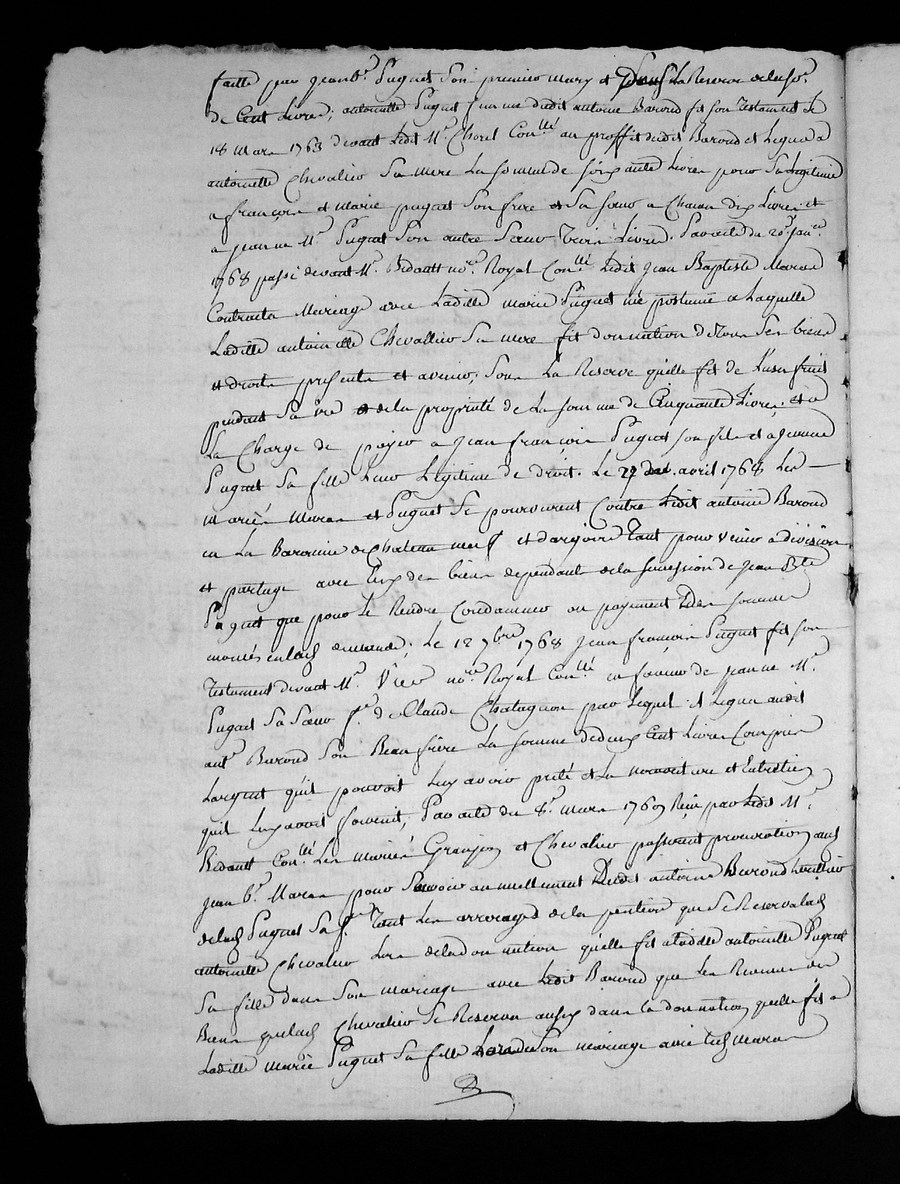 faitte par jean b.t Puguet son premier mary et sous la Reserve de la so.e
de Cent Livres; antoinette Puguet femme dudit antoine Baroud fit son Testament Le
18 mars 1763 devant Ledit M.e Chorel Con.lé au proffit dudit Baroud et Legua a
antoinette Chevalier Sa mere La somme de soixante Livres pour Sa Legitime
a françois et marie puguet Son frere et Sa soeur a Chacun dix Livres et
a jeanne M.e Puguet Son autre Soeur Trois Livres. Par acte du 20.e janv.er
1768 passé devant M.e Bidault no.re Royal Con.lé Ledit Jean Baptiste Maras
Contracta Mariage avec Ladille marie Puguet née postume a Laquelle
Ladille antoinette Chevallier Sa mere fit donnation de Tous Ses biens
et droits presents et avenir, sous La Reserve quelle fit de L'usufruit
pendant Sa vie et de la propriété de La somme de Cinquante Livres, et a
La Charge de payer a Jean françois Puguet son fils et a jeanne
Puguet Sa fille Leur Legitime de droit. Le avril 1768 Les
mariés Maras et Puguet Se pourvurent Contre Ledit antoine Baroud
en La Baronnie de Chateau neuf et dargoire Tant pour venir a division
et partage avec Eux des biens dependants de la succession de Jean Bte
Puguet que pour Le Rendre Condamner au payement des sommes
enlad. demande; Le 12 7bre 1768 jean françois Puguet fit son
Testament devant M.e no.re Royal Con.lé en faveur de jeanne M.e
Puguet Sa Soeur f.e de Claude Chatagnon par Lequel il Legua audit
ant.e Baroud Son Beau frere La somme de deux Cent Livres Compris
Largent qu'il pouvoit Luy avoir preté et La nourriture et Entretien
quil Luy avoit fourni; Par acte du 8.e mars 1769 Reçu par Ledit M.e
Bidault Con.lé Les mariés Granjon et Chevalier passerent procuration aud.
jean b.t Maras pour Savoir annuellement Dudit antoine Baroud heritier
delad. Puguet Sa f.e Tant Les arrerages de la pention que Se Reserva lad.
antoinette Chevalier Lors de la donnation quelle fit a Ladelle antoinette Puguet
Sa fille dans Son mariage avec Ledit Baroud que Les Revenus des
Biens que lad. Chevalier Se Reserva aussy dans la donnation quelle fit a
Ladille marie Puguet Sa fille Lors de Son mariage avec led. Maras